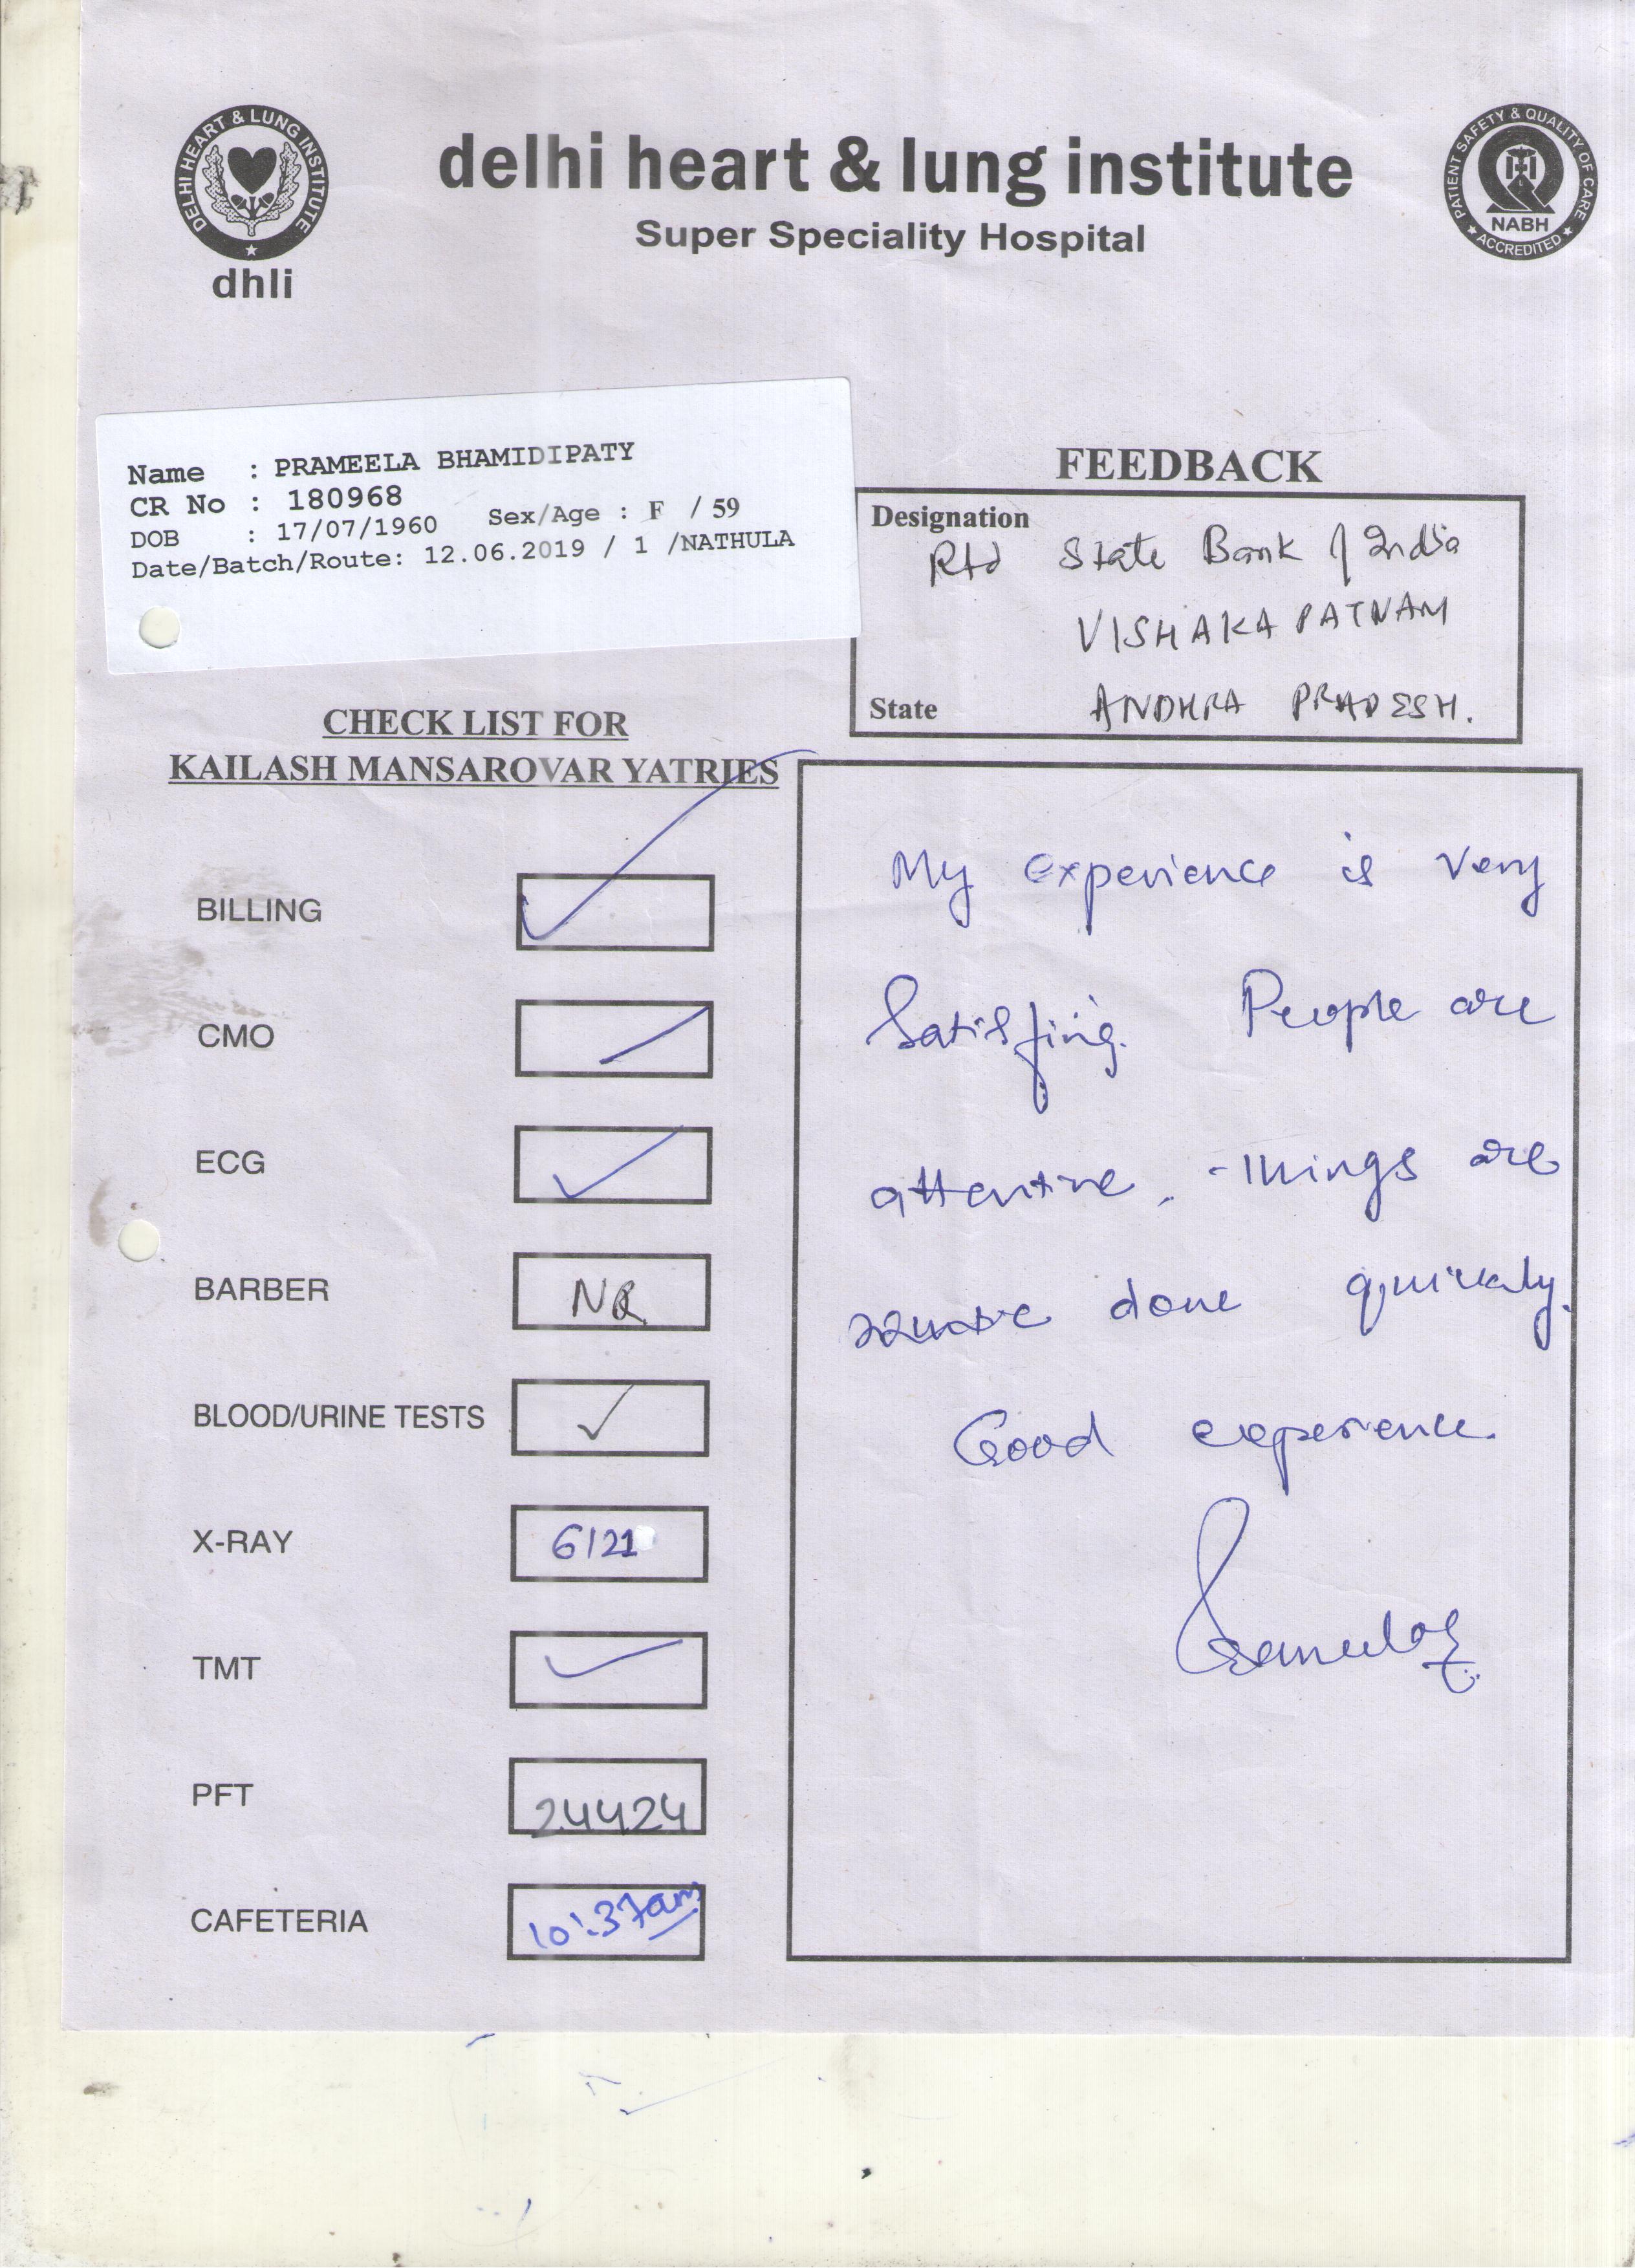 DELHI HEART & LUNG INSTITUTE
dhli
delhi heart & lung institute
Super Speciality Hospital
PATIENT SAFETY & QUALITY OF CARE
NABH
ACCREDITED
Name : PRAMEELA BHAMIDIPATY
CR No : 180968
DOB : 17/07/1960 Sex/Age : F / 59
Date/Batch/Route: 12.06.2019 / 1 /NATHULA
FEEDBACK
Designation
Rtd State Bank of India
VISHAKAPATNAM
State ANDHRA PRADESH.
CHECK LIST FOR
KAILASH MANSAROVAR YATRIES
BILLING
CMO
ECG
BARBER NR
BLOOD/URINE TESTS
X-RAY 6121
TMT
PFT 24424
CAFETERIA 10:37am
My experience is very
Satisfing. People are
attentive. Things are
done quickly.
Good experience.
Prameela